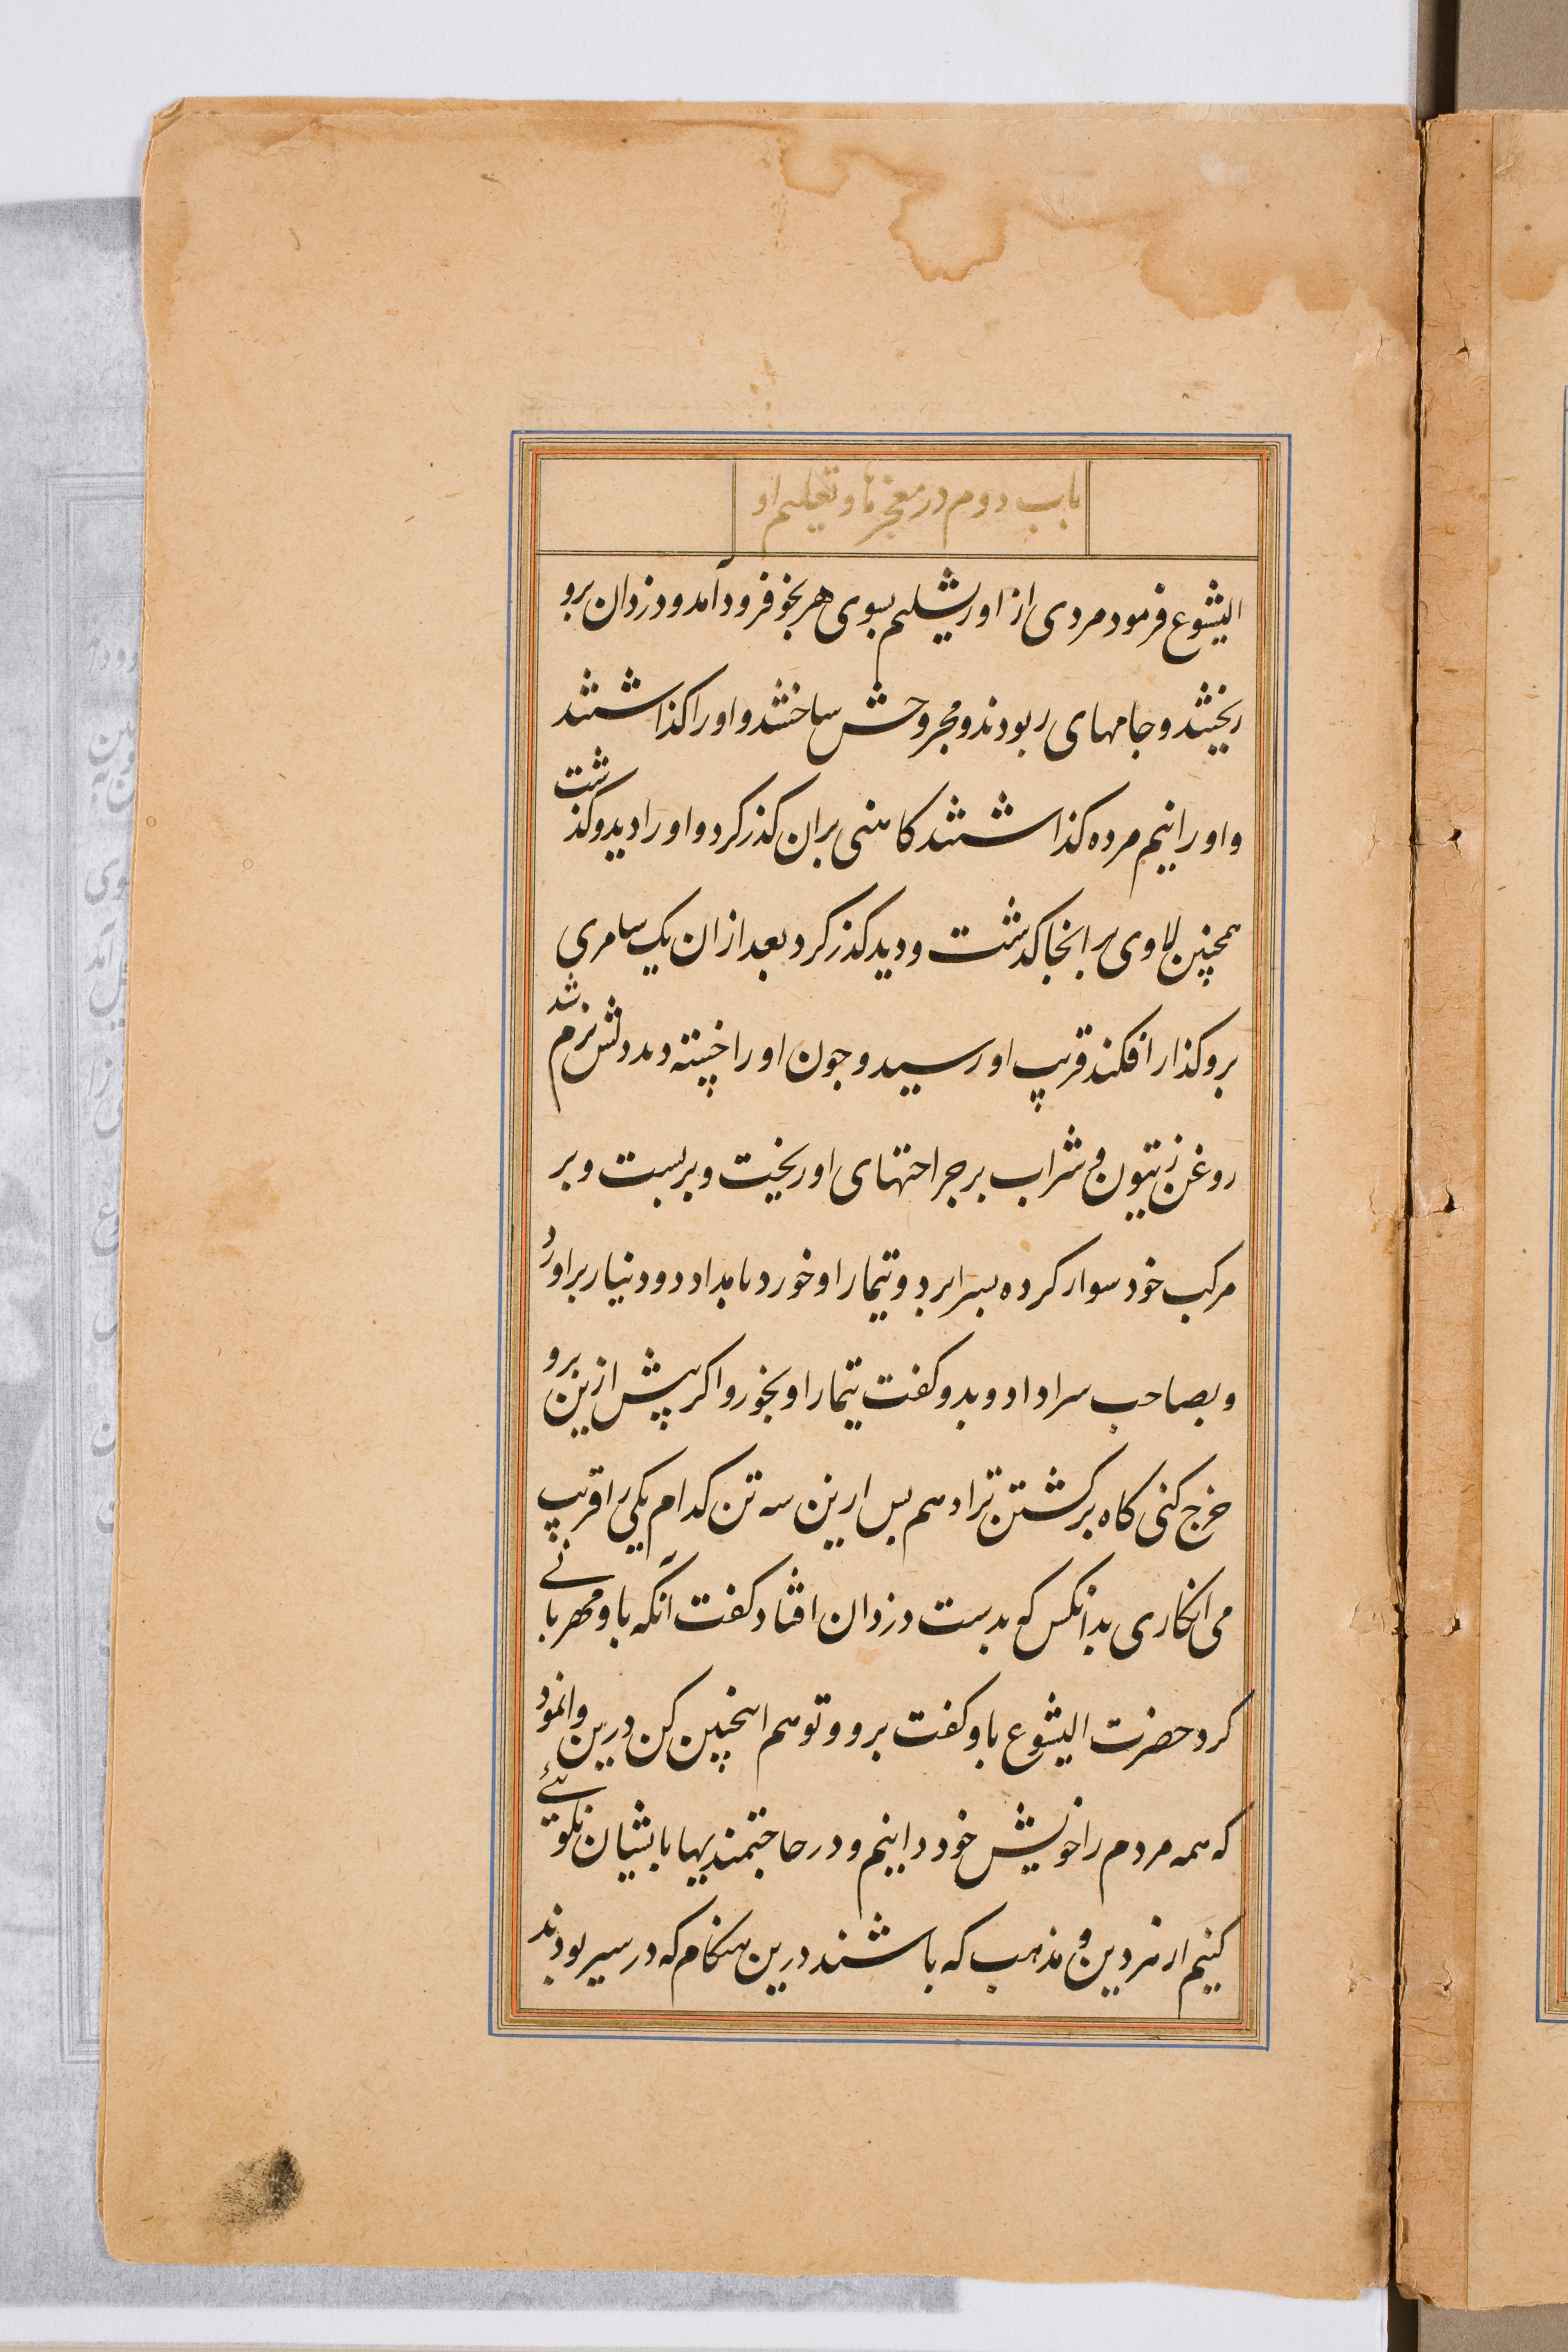 باب دوم در معجزها و تعلیم او
الیشوع فرمود مردی از اورشلیم بسوی هریخو فرود آمد و دزدان برو
ریختند و جامهای ربودند و مجروحش ساختند و او را کذاشتند
و او را نیم مرده کذاشتند کاهنی بران کذر کرد و او را دید و کذشت
همچنین لاوی بر انجا کدشت و دید کذر کرد بعد ازان یک سامری
برو کذار افکند قریب او رسید و جون او را خسته دید دلش نرم شد
روغن زیتون و شراب بر جراحتهای او ریخت و بربست و بر
مرکب خود سوار کرده بسرا برد و تیمار او خورد بامداد دو دنیار براورد
و بصاحب سرا داد و بدو کفت تیمار او بخور و اکر پیش ازین برو
خرج کنی کاه برکشتن ترا دهم بس ازین سه تن کدام یکی را قریب
می انکاری بدانکس که بدست دزدان افتاد کفت آنکه باو مهربانی
کرد حضرت الیشوع باو کفت برو و تو هم اینچنین کن درین وانمود
که همه مردم را خویش خود دانیم و در حاجتمندیها بایشان نکوئی
کنیم از هر دین و مذهب که باشند درین هنکام که در سیر بودند